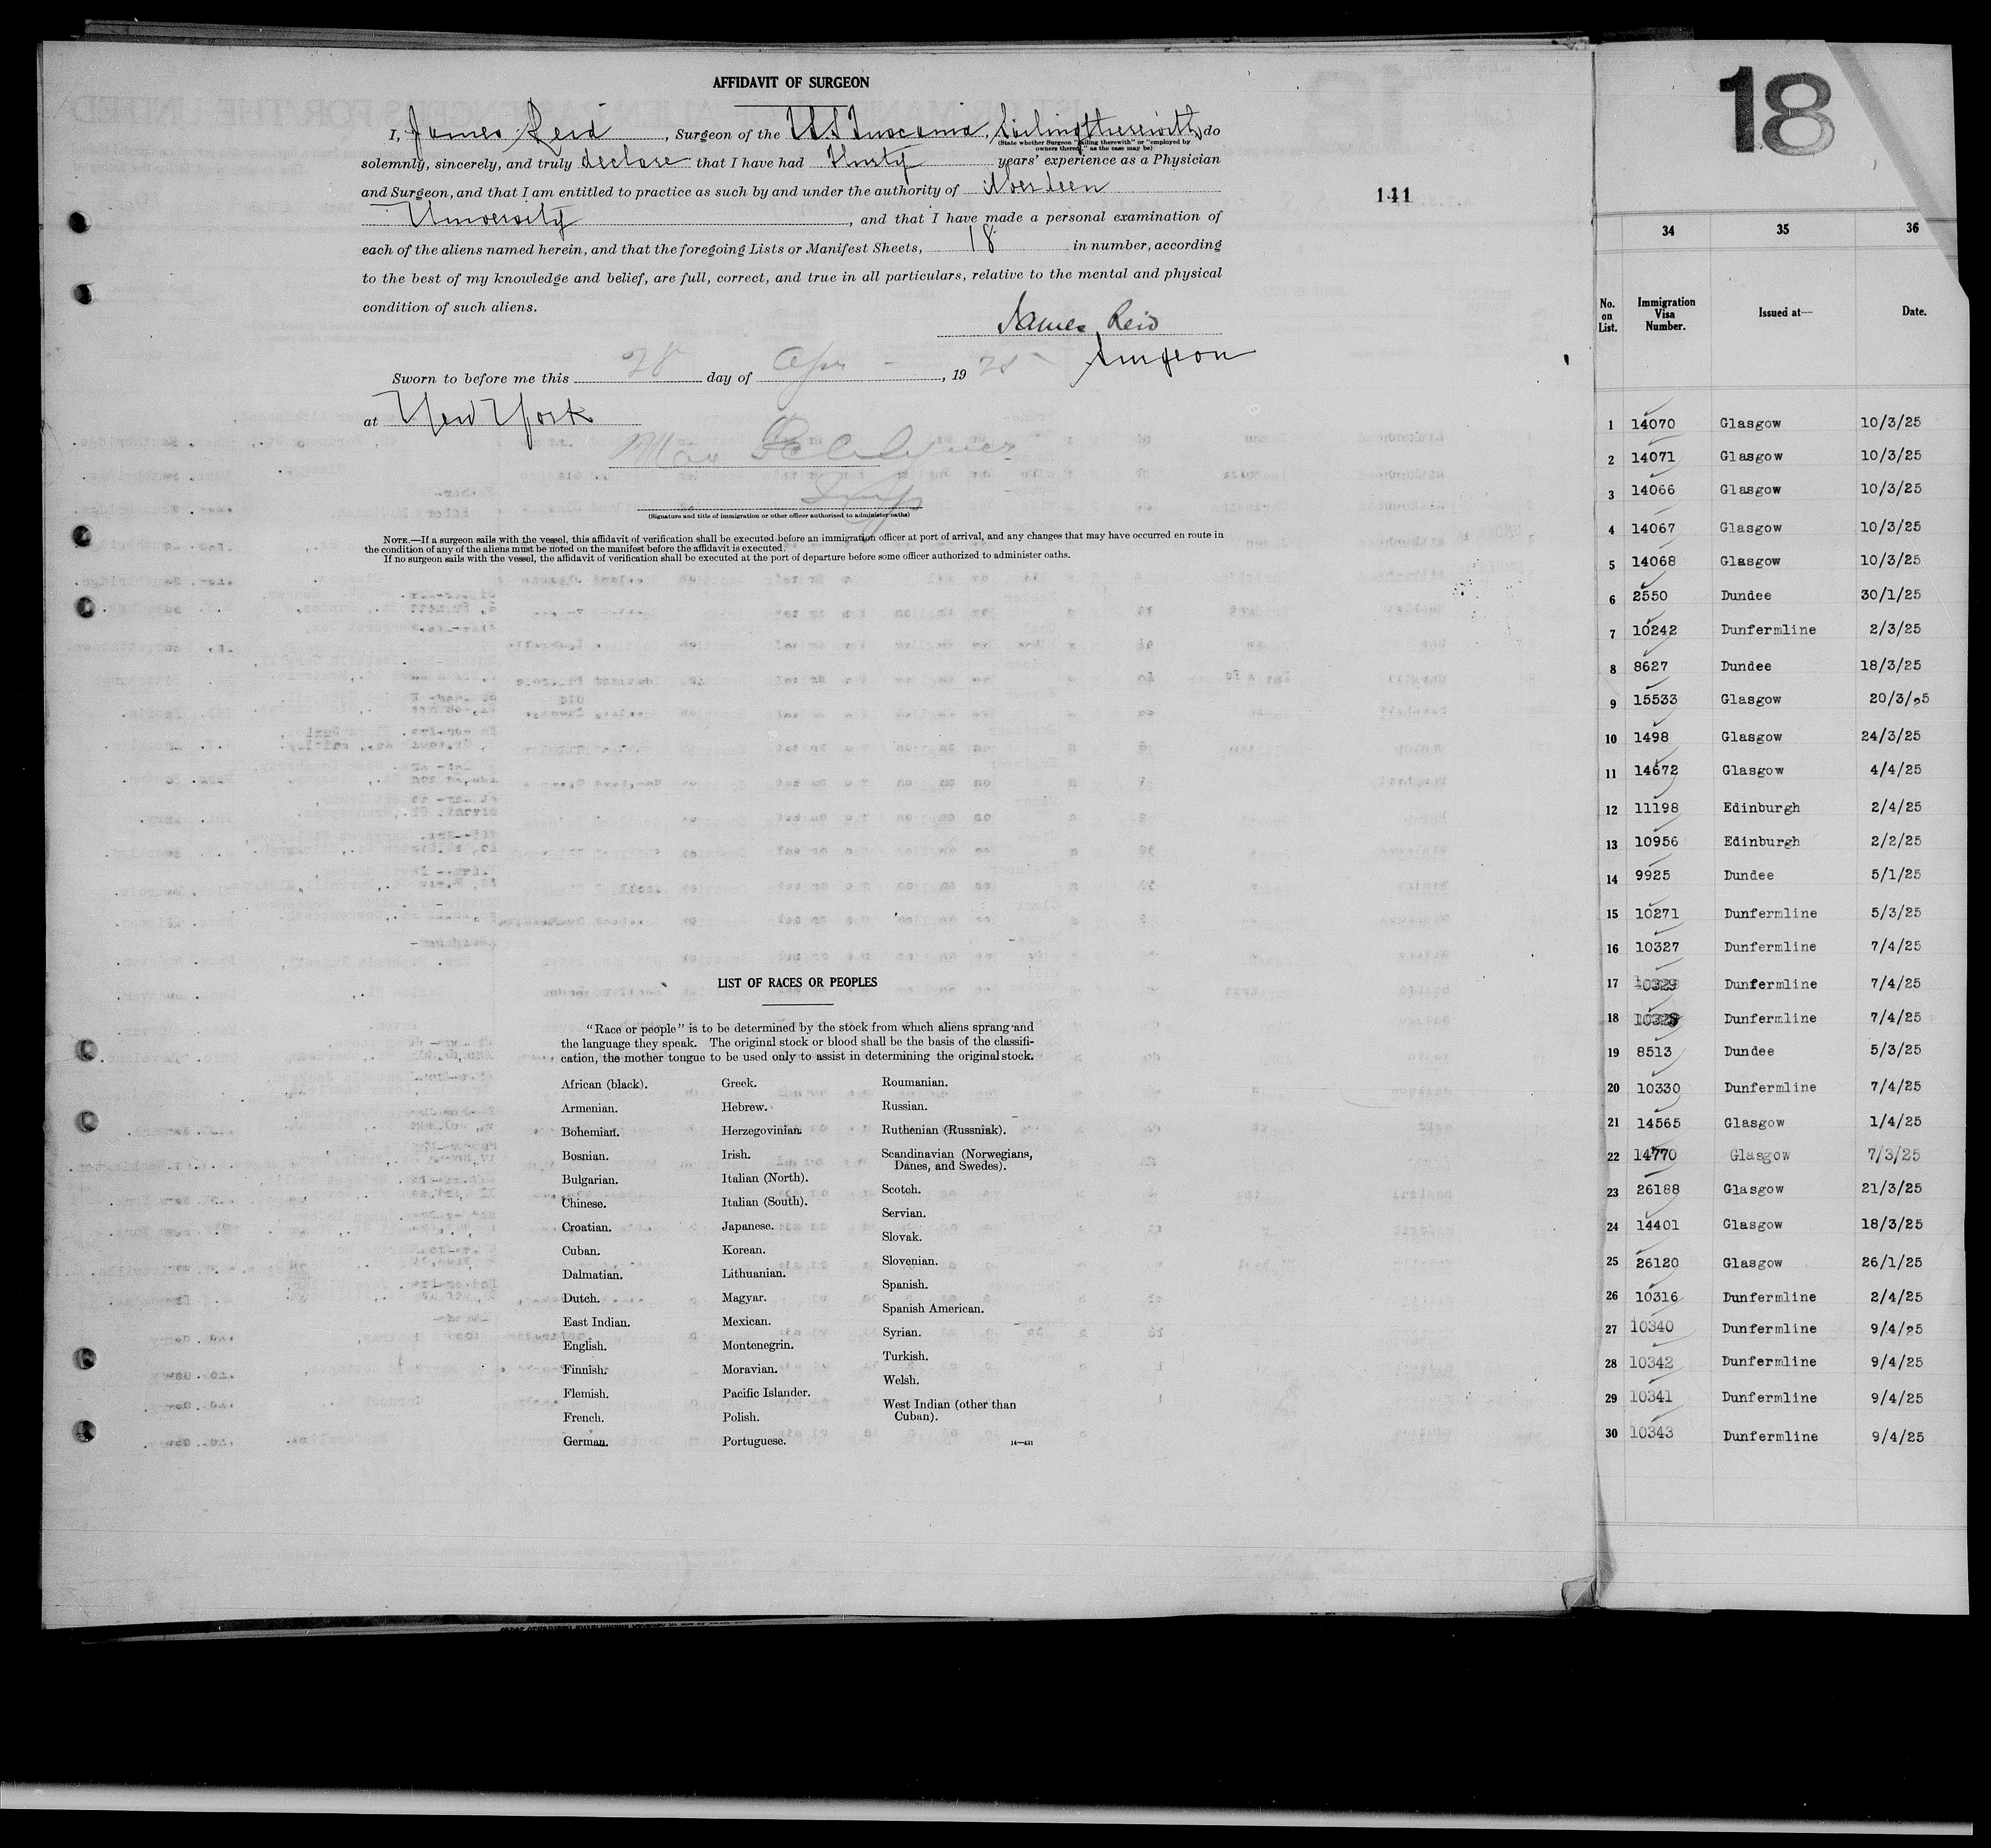 AFFIDAVIT OF SURGEON
I, James Reid, Surgeon of the Tuscania, Sailing therewith, do
(State whether Surgeon "sailing therewith" or "employed by
owners thereof," as the case may be)
solemnly, sincerely, and truly declare that I have had Thirty years' experience as a Physician
and Surgeon, and that I am entitled to practice as such by and under the authority of Aberdeen
University, and that I have made a personal examination of
each of the aliens named herein, and that the foregoing Lists or Manifest Sheets, 18 in number, according
to the best of my knowledge and belief, are full, correct, and true in all particulars, relative to the mental and physical
condition of such aliens.
James Reid
Surgeon
Sworn to before me this 28 day of Apr, 1925
at New York
Max
Insp
(Signature and title of immigration or other officer authorized to administer oaths)
NOTE.—If a surgeon sails with the vessel, this affidavit of verification shall be executed before an immigration officer at port of arrival, and any changes that may have occurred en route in
the condition of any of the aliens must be noted on the manifest before the affidavit is executed.
If no surgeon sails with the vessel, the affidavit of verification shall be executed at the port of departure before some officer authorized to administer oaths.
141
LIST OF RACES OR PEOPLES
"Race or people" is to be determined by the stock from which aliens sprang and
the language they speak. The original stock or blood shall be the basis of the classifi-
cation, the mother tongue to be used only to assist in determining the original stock.
African (black).
Armenian.
Bohemian.
Bosnian.
Bulgarian.
Chinese.
Croatian.
Cuban.
Dalmatian.
Dutch.
East Indian.
English.
Finnish.
Flemish.
French.
German.
Greek.
Hebrew.
Herzegovinian.
Irish.
Italian (North).
Italian (South).
Japanese.
Korean.
Lithuanian.
Magyar.
Mexican.
Montenegrin.
Moravian.
Pacific Islander.
Polish.
Portuguese.
Roumanian.
Russian.
Ruthenian (Russniak).
Scandinavian (Norwegians,
Danes, and Swedes).
Scotch.
Servian.
Slovak.
Slovenian.
Spanish.
Spanish American.
Syrian.
Turkish.
Welsh.
West Indian (other than
Cuban).
14—431
18
34 35 36
No. on List. Immigration Visa Number. Issued at— Date.
1 14070 Glasgow 10/3/25
2 14071 Glasgow 10/3/25
3 14066 Glasgow 10/3/25
4 14067 Glasgow 10/3/25
5 14068 Glasgow 10/3/25
6 2550 Dundee 30/1/25
7 10242 Dunfermline 2/3/25
8 8627 Dundee 18/3/25
9 15533 Glasgow 20/3/25
10 1498 Glasgow 24/3/25
11 14672 Glasgow 4/4/25
12 11198 Edinburgh 2/4/25
13 10956 Edinburgh 2/2/25
14 9925 Dundee 5/1/25
15 10271 Dunfermline 5/3/25
16 10327 Dunfermline 7/4/25
17 10329 Dunfermline 7/4/25
18 10328 Dunfermline 7/4/25
19 8513 Dundee 5/3/25
20 10330 Dunfermline 7/4/25
21 14565 Glasgow 1/4/25
22 14770 Glasgow 7/3/25
23 26188 Glasgow 21/3/25
24 14401 Glasgow 18/3/25
25 26120 Glasgow 26/1/25
26 10316 Dunfermline 2/4/25
27 10340 Dunfermline 9/4/25
28 10342 Dunfermline 9/4/25
29 10341 Dunfermline 9/4/25
30 10343 Dunfermline 9/4/25